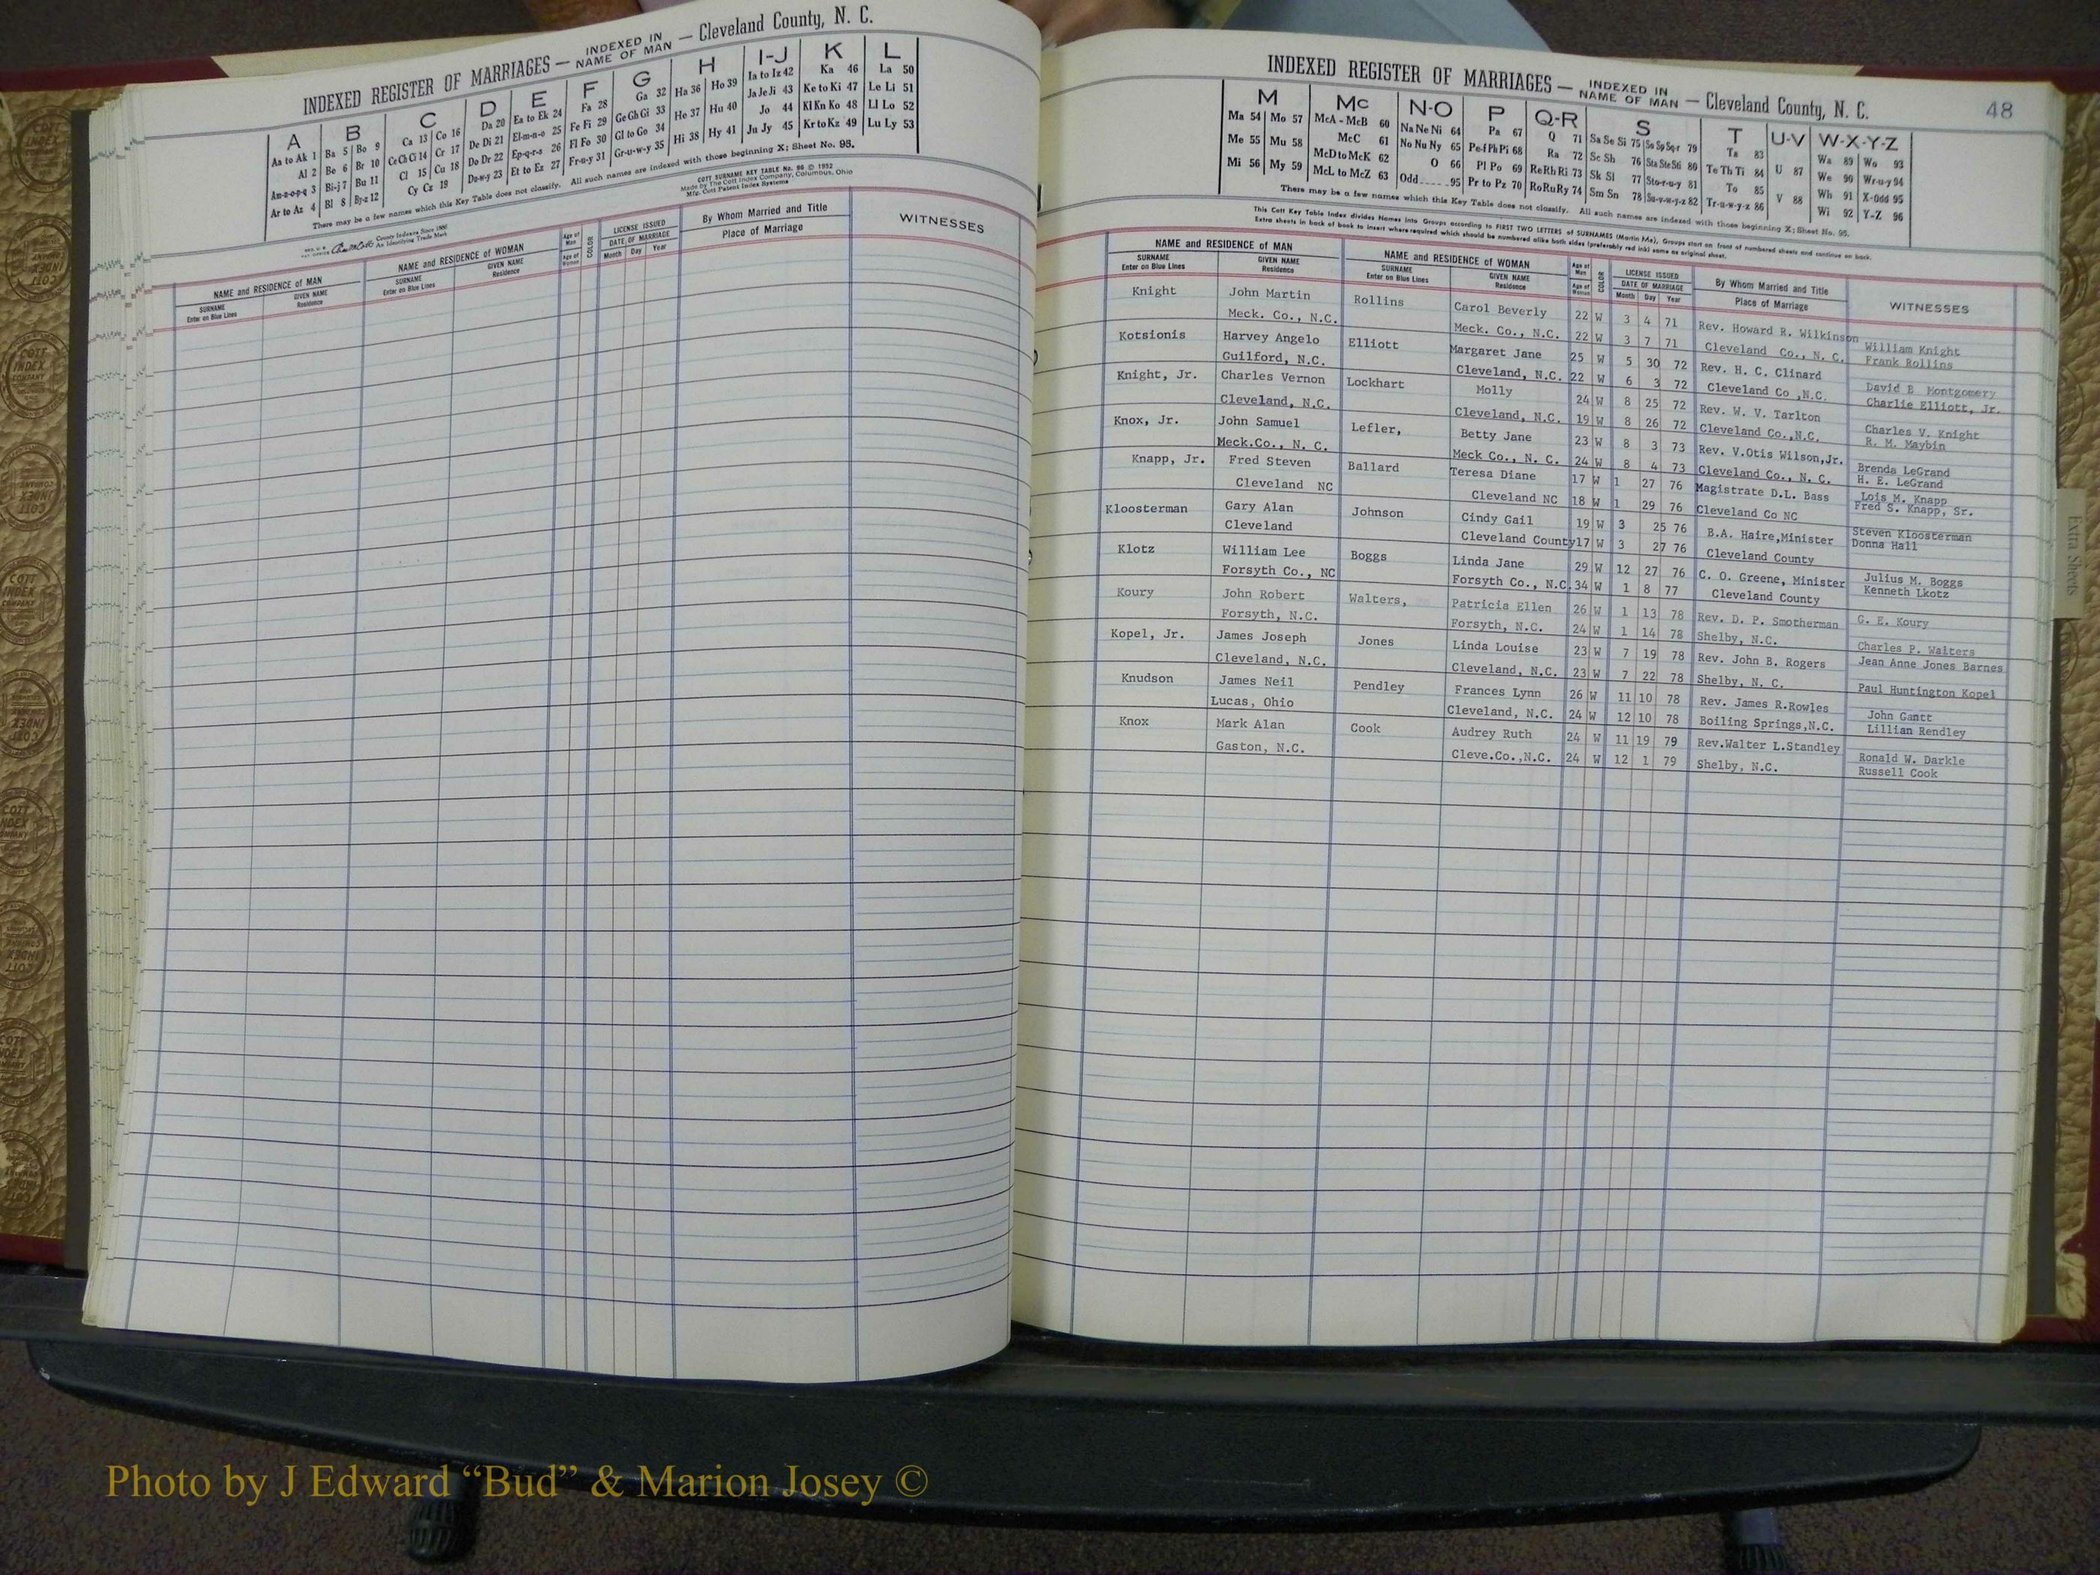 INDEXED REGISTER OF MARRIAGES — INDEXED IN NAME OF MAN — Cleveland County, N. C.
A B C D E F G H I-J K L
Aa to Ak 1 Ba 5 Bo 9 Ca 13 Co 16 Da 20 Ea to Ek 24 Fa 28 Ga 32 Ha 36 Ho 39 Ia to Iz 42 Ka 46 La 50
Al 2 Be 6 Br 10 Ce Ch Ci 14 Cr 17 De Di 21 El-m-n-o 25 Fe Fi 29 Ge Gh Gi 33 He 37 Hu 40 Ja Je Ji 43 Ke to Ki 47 Le Li 51
Am-n-o-p-q 3 Bi-j 7 Bu 11 Cl 15 Cu 18 Do Dr 22 Ep-q-r-s 26 Fl Fo 30 Gl to Go 34 Hi 38 Hy 41 Jo 44 Kl Kn Ko 48 Ll Lo 52
Ar to Az 4 Bl 8 By-z 12 Cy Cz 19 Du-w-y 23 Et to Ez 27 Fr-u-y 31 Gr-u-w-y 35 Ju Jy 45 Kr to Kz 49 Lu Ly 53
There may be a few names which this Key Table does not classify. All such names are indexed with those beginning X; Sheet No. 95.
County Indexes Since 1888
An Identifying Trade Mark
COTT SURNAME KEY TABLE No. 96 © 1952
Made by The Cott Index Company, Columbus, Ohio
Mfg. Cott Patent Index Systems
NAME and RESIDENCE OF MAN NAME and RESIDENCE OF WOMAN Age of Man Age of Woman COLOR LICENSE ISSUED DATE OF MARRIAGE Month Day Year By Whom Married and Title Place of Marriage WITNESSES
SURNAME Enter on Blue Lines GIVEN NAME Residence SURNAME Enter on Blue Lines GIVEN NAME Residence
INDEXED REGISTER OF MARRIAGES — INDEXED IN NAME OF MAN — Cleveland County, N. C. 48
M Mc N-O P Q-R S T U-V W-X-Y-Z
Ma 54 Mo 57 McA - McB 60 Na Ne Ni 64 Pa 67 Q 71 Sa Se Si 75 So Sp Sq-r 79 Ta 83 U 87 Wa 89 Wo 93
Me 55 Mu 58 McC 61 No Nu Ny 65 Pe-f Ph Pi 68 Ra 72 Sc Sh 76 Sta Ste Sti 80 Te Th Ti 84 We 90 Wr-u-y 94
Mi 56 My 59 McD to McK 62 O 66 Pl Po 69 Re Rh Ri 73 Sk Sl 77 Sto-r-u-y 81 To 85 V 88 Wh 91 X-Odd 95
McL to McZ 63 Odd 95 Pr to Pz 70 Ro Ru Ry 74 Sm Sn 78 Su-v-w-y-z 82 Tr-u-w-y-z 86 Wi 92 Y-Z 96
There may be a few names which this Key Table does not classify. All such names are indexed with those beginning X; Sheet No. 95.
This Cott Key Table Index divides Names into Groups according to FIRST TWO LETTERS of SURNAMES (Martin Ma), Groups start on front of numbered sheets and continue on back.
Extra sheets in back of book to insert where required which should be numbered alike both sides (preferably red ink) same as original sheet.
NAME and RESIDENCE OF MAN NAME and RESIDENCE OF WOMAN Age of Man Age of Woman COLOR LICENSE ISSUED DATE OF MARRIAGE Month Day Year By Whom Married and Title Place of Marriage WITNESSES
SURNAME Enter on Blue Lines GIVEN NAME Residence SURNAME Enter on Blue Lines GIVEN NAME Residence
Knight John Martin Rollins Carol Beverly 22 W 3 4 71 Rev. Howard R. Wilkinson William Knight
Meck. Co., N.C. Meck. Co., N.C. 22 W 3 7 71 Cleveland Co., N. C. Frank Rollins
Kotsionis Harvey Angelo Elliott Margaret Jane 25 W 5 30 72 Rev. H. C. Clinard David E Montgomery
Guilford, N.C. Cleveland, N.C. 22 W 6 3 72 Cleveland Co ,N.C. Charlie Elliott, Jr.
Knight, Jr. Charles Vernon Lockhart Molly 24 W 8 25 72 Rev. W. V. Tarlton Charles V. Knight
Cleveland, N.C. Cleveland, N.C. 19 W 8 26 72 Cleveland Co.,N.C. R. M. Maybin
Knox, Jr. John Samuel Lefler, Betty Jane 23 W 8 3 73 Rev. V.Otis Wilson,Jr. Brenda LeGrand
Meck.Co., N. C. Meck Co., N. C. 24 W 8 4 73 Cleveland Co., N. C. H. E. LeGrand
Knapp, Jr. Fred Steven Ballard Teresa Diane 17 W 1 27 76 Magistrate D.L. Bass Lois M. Knapp
Cleveland NC Cleveland NC 18 W 1 29 76 Cleveland Co NC Fred S. Knapp, Sr.
Kloosterman Gary Alan Johnson Cindy Gail 19 W 3 25 76 B.A. Haire,Minister Steven Kloosterman
Cleveland Cleveland County 17 W 3 27 76 Cleveland County Donna Hall
Klotz William Lee Boggs Linda Jane 29 W 12 27 76 C. O. Greene, Minister Julius M. Boggs
Forsyth Co., NC Forsyth Co., N.C. 34 W 1 8 77 Cleveland County Kenneth Lkotz
Koury John Robert Walters, Patricia Ellen 26 W 1 13 78 Rev. D. P. Smotherman G. E. Koury
Forsyth, N.C. Forsyth, N.C. 24 W 1 14 78 Shelby, N.C. Charles P. Walters
Kopel, Jr. James Joseph Jones Linda Louise 23 W 7 19 78 Rev. John B. Rogers Jean Anne Jones Barnes
Cleveland, N.C. Cleveland, N.C. 23 W 7 22 78 Shelby, N. C. Paul Huntington Kopel
Knudson James Neil Pendley Frances Lynn 26 W 11 10 78 Rev. James R.Rowles John Gantt
Lucas, Ohio Cleveland, N.C. 24 W 12 10 78 Boiling Springs,N.C. Lillian Rendley
Knox Mark Alan Cook Audrey Ruth 24 W 11 19 79 Rev.Walter L.Standley Ronald W. Darkle
Gaston, N.C. Cleve.Co.,N.C. 24 W 12 1 79 Shelby, N.C. Russell Cook
Extra Sheets
COTT INDEX COMPANY
Photo by J Edward “Bud” & Marion Josey ©